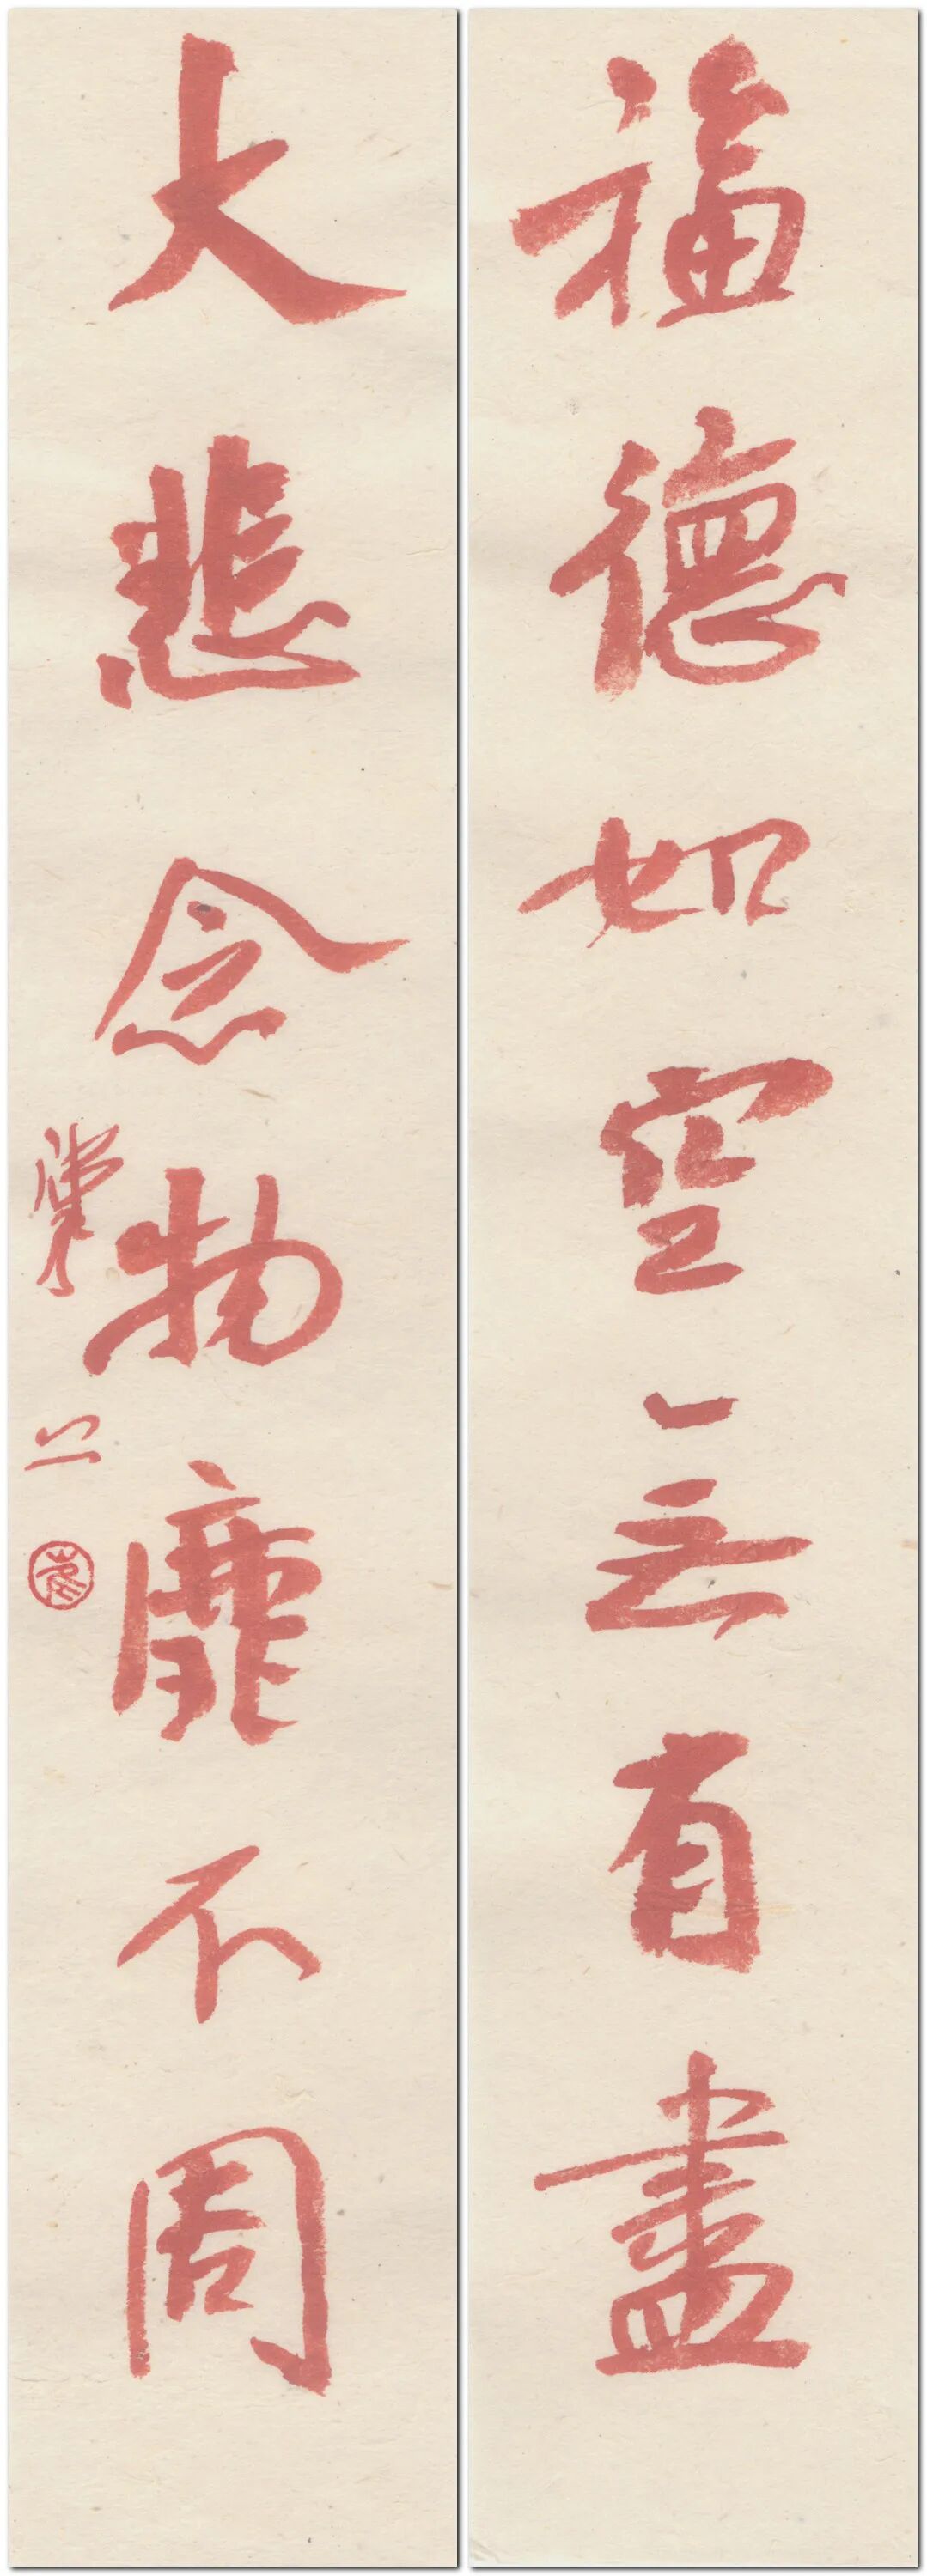 福德如空無有盡
大悲念物靡不周